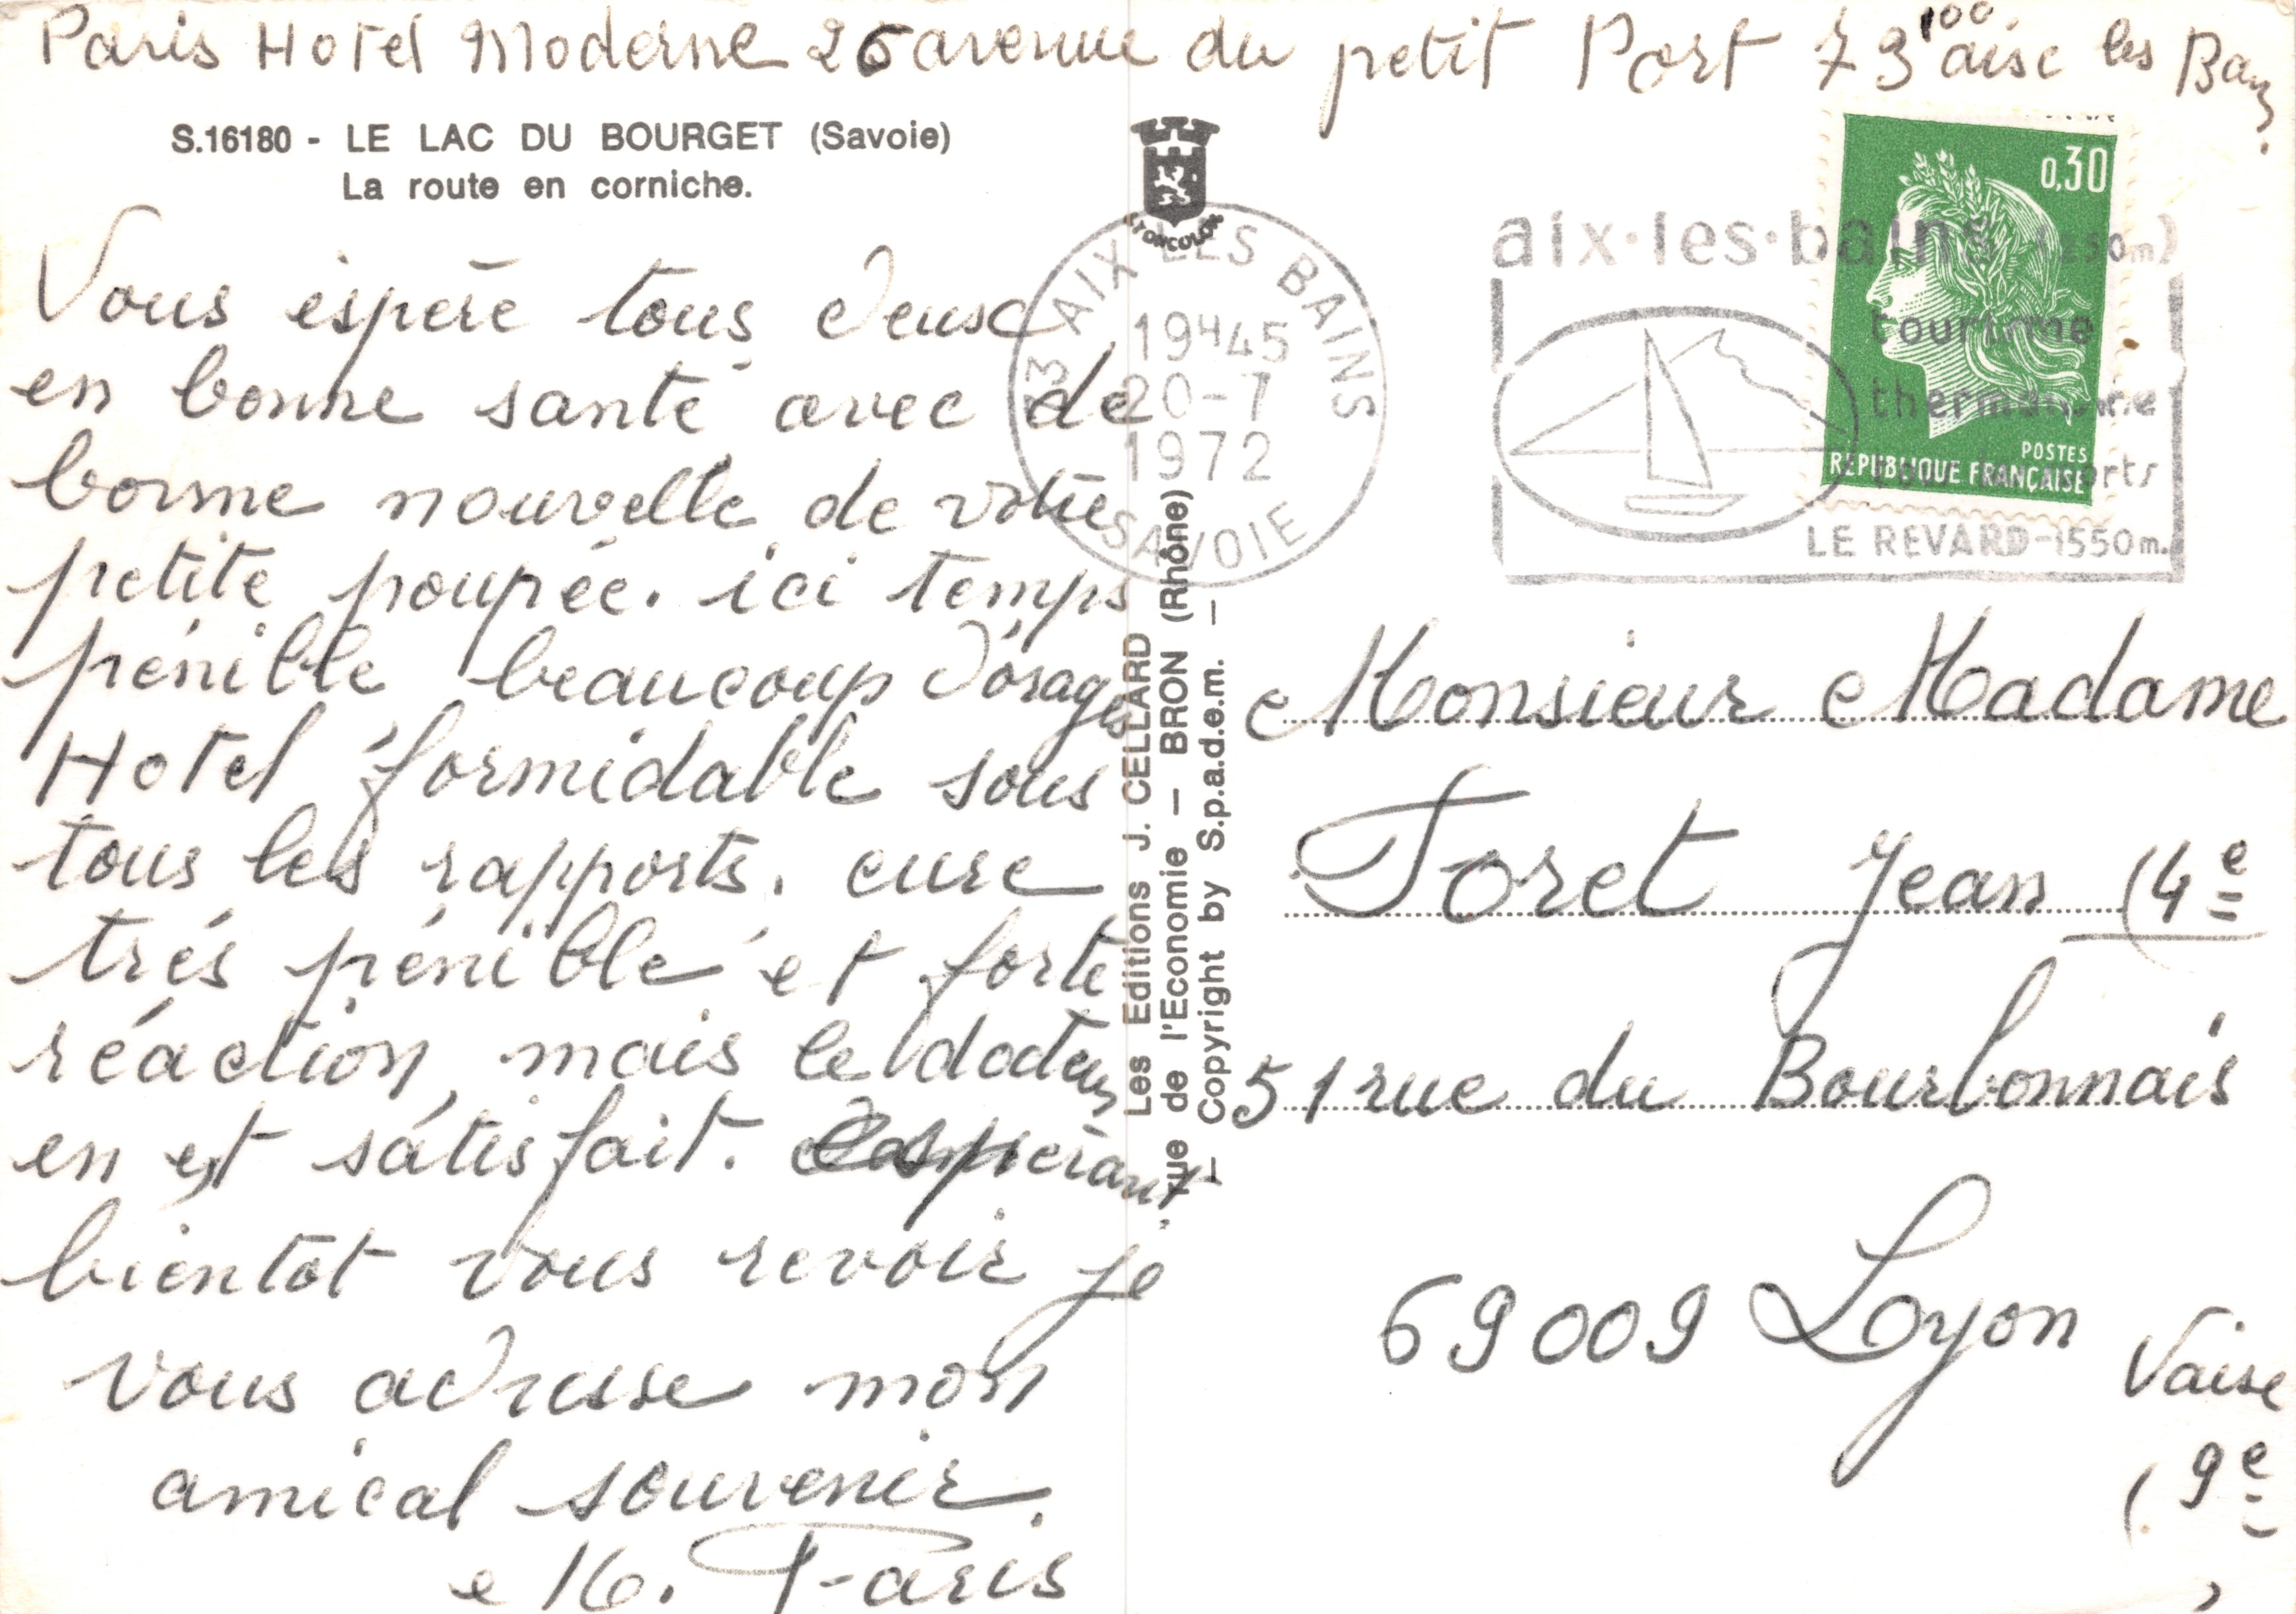 Paris Hotel Moderne 26 avenue du petit Port 73100 aisc les Bains
S.16180 - LE LAC DU BOURGET (Savoie)
La route en corniche.
Vous espère tous deusc
en bonne santé avec de
bonne nouvelle de votre
petite poupée. ici temps
pénible beaucoup d'orages
Hotel formidable sous
tous les rapports. cure
trés pénible et forte
réaction, mais le docteur
en est satisfait. espérant
bientot vous revoir je
vous adresse mon
amical souvenir.
M. Paris
LYONCOLOR
Les Editions J. CELLARD
rue de l'Economie — BRON (Rhône)
— Copyright by S.p.a.d.e.m. —
73 AIX LES BAINS
19H45
20-7
1972
SAVOIE
aix·les·bains (250m)
tourisme
thermalisme
sports
LE REVARD-1550m.
0,30
POSTES
REPUBLIQUE FRANÇAISE
Monsieur Madame
Foret Jean (4e
51 rue du Bourbonnais
69009 Lyon Vaise
(9e